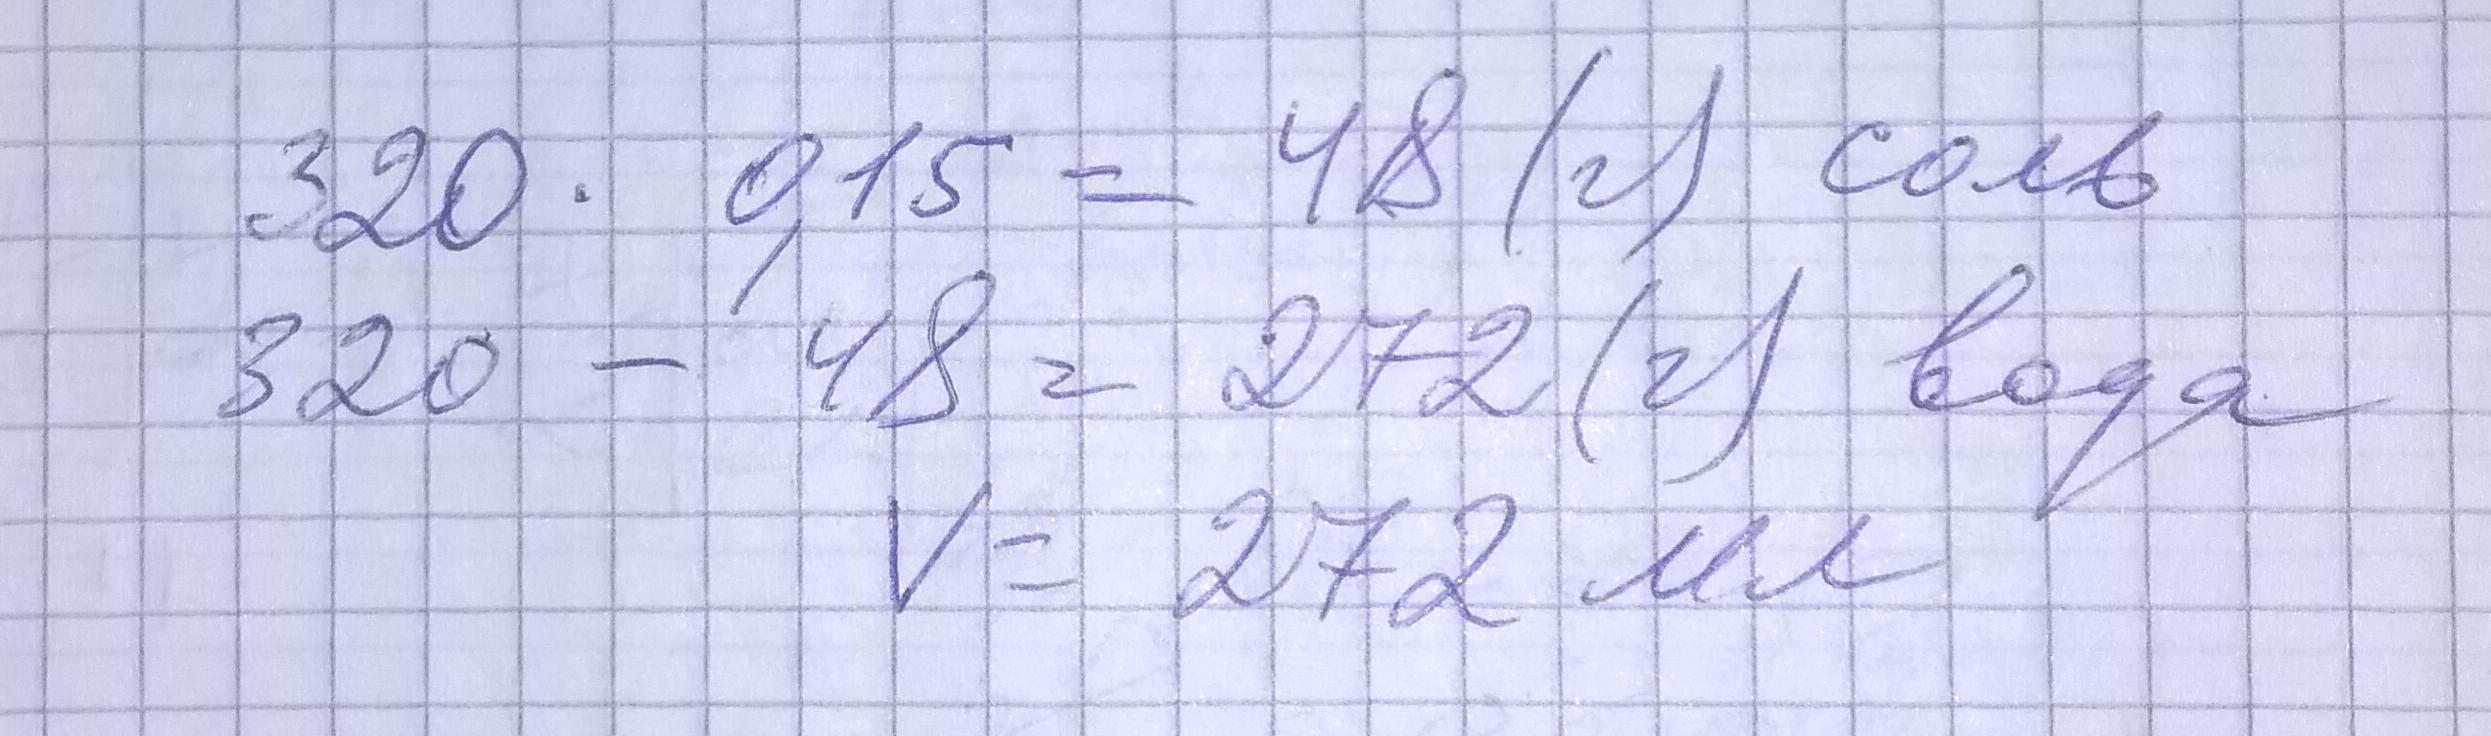 320 · 0,15 = 48 (г) соль
320 - 48 = 272 (г) вода
V = 272 мл